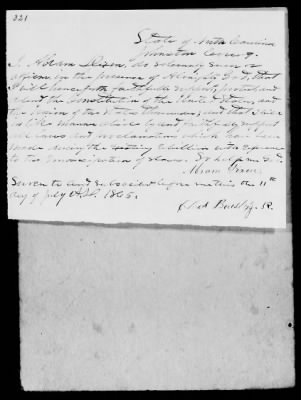 321
State of North Carolina
Johnston County
I Abram Dixon, do solemnly swear or
affirm, in the presence of Almighty God, that
I will henceforth faithfully support, protect and
defend the Constitution of the United States, and
the Union of the States thereunder, and that I will
in like manner abide by and faithfully support
all laws and proclamations which have been
made during the existing rebellion with reference
to the Emancipation of slaves. So help me God.
Abram Dixon
Sworn to and subscribed before me this the 11th
day of July A.D. 1865.
J.P.